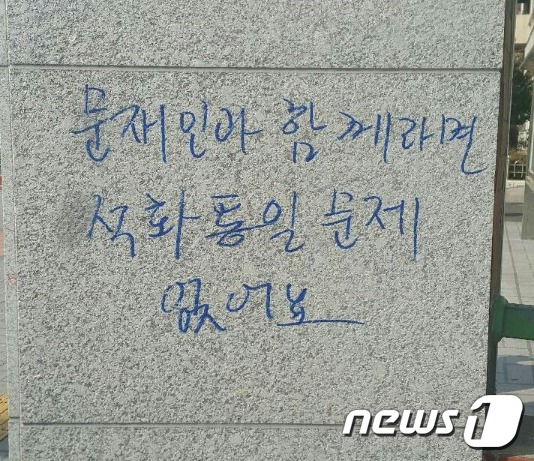 문재인과 함께라면
적화통일 문제
없어요
news1